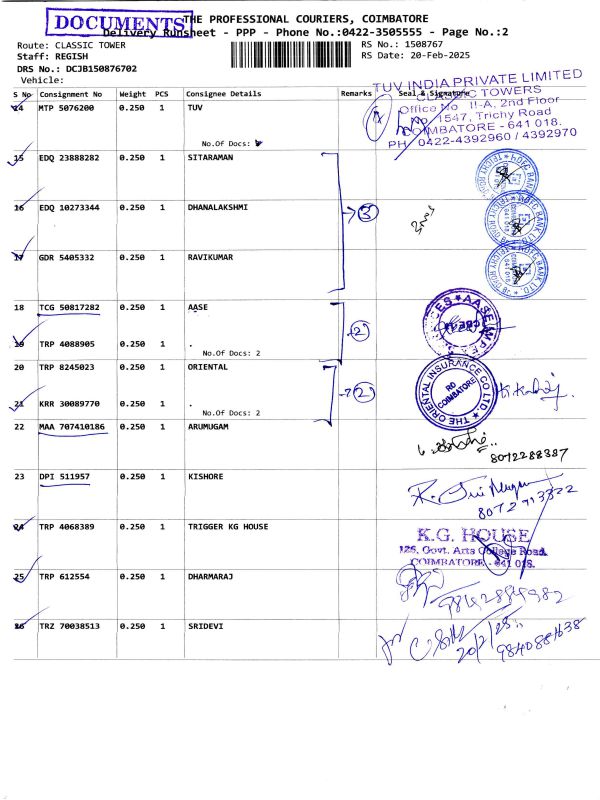 DOCUMENTS
THE PROFESSIONAL COURIERS, COIMBATORE
Delivery Runsheet - PPP - Phone No.:0422-3505555 - Page No.:2
Route: CLASSIC TOWER RS No.: 1508767
Staff: REGISH RS Date: 20-Feb-2025
DRS No.: DCJB150876702
Vehicle:
S No Consignment No Weight PCS Consignee Details Remarks Seal & Signature
TUV INDIA PRIVATE LIMITED
CLASSIC TOWERS
Office No II-A, 2nd Floor
No. 1547, Trichy Road
COIMBATORE - 641 018.
PH 0422-4392960 / 4392970
14 MTP 5076200 0.250 1 TUV
No.Of Docs:
15 EDQ 23888282 0.250 1 SITARAMAN
16 EDQ 10273344 0.250 1 DHANALAKSHMI
3
HDFC BANK LTD. TRICHY ROAD
17 GDR 5405332 0.250 1 RAVIKUMAR
18 TCG 50817282 0.250 1 AASE
2
19 TRP 4088905 0.250 1 .
No.Of Docs: 2
20 TRP 8245023 0.250 1 ORIENTAL
2
THE ORIENTAL INSURANCE CO LTD.
RO
COIMBATORE
21 KRR 30089770 0.250 1 .
No.Of Docs: 2
22 MAA 707410186 0.250 1 ARUMUGAM
8072288387
23 DPI 511957 0.250 1 KISHORE
8072713322
24 TRP 4068389 0.250 1 TRIGGER KG HOUSE
K.G. HOUSE
126, Govt. Arts College Road,
COIMBATORE - 641 018.
25 TRP 612554 0.250 1 DHARMARAJ
9842884982
26 TRZ 70038513 0.250 1 SRIDEVI
20/2/25